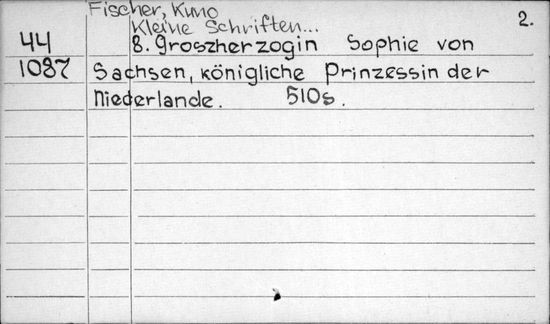 Fischer, Kuno
2.
Kleine Schriften...
44 8. Groszherzogin Sophie von
1087 Sachsen, königliche Prinzessin der
Niederlande. 510s.